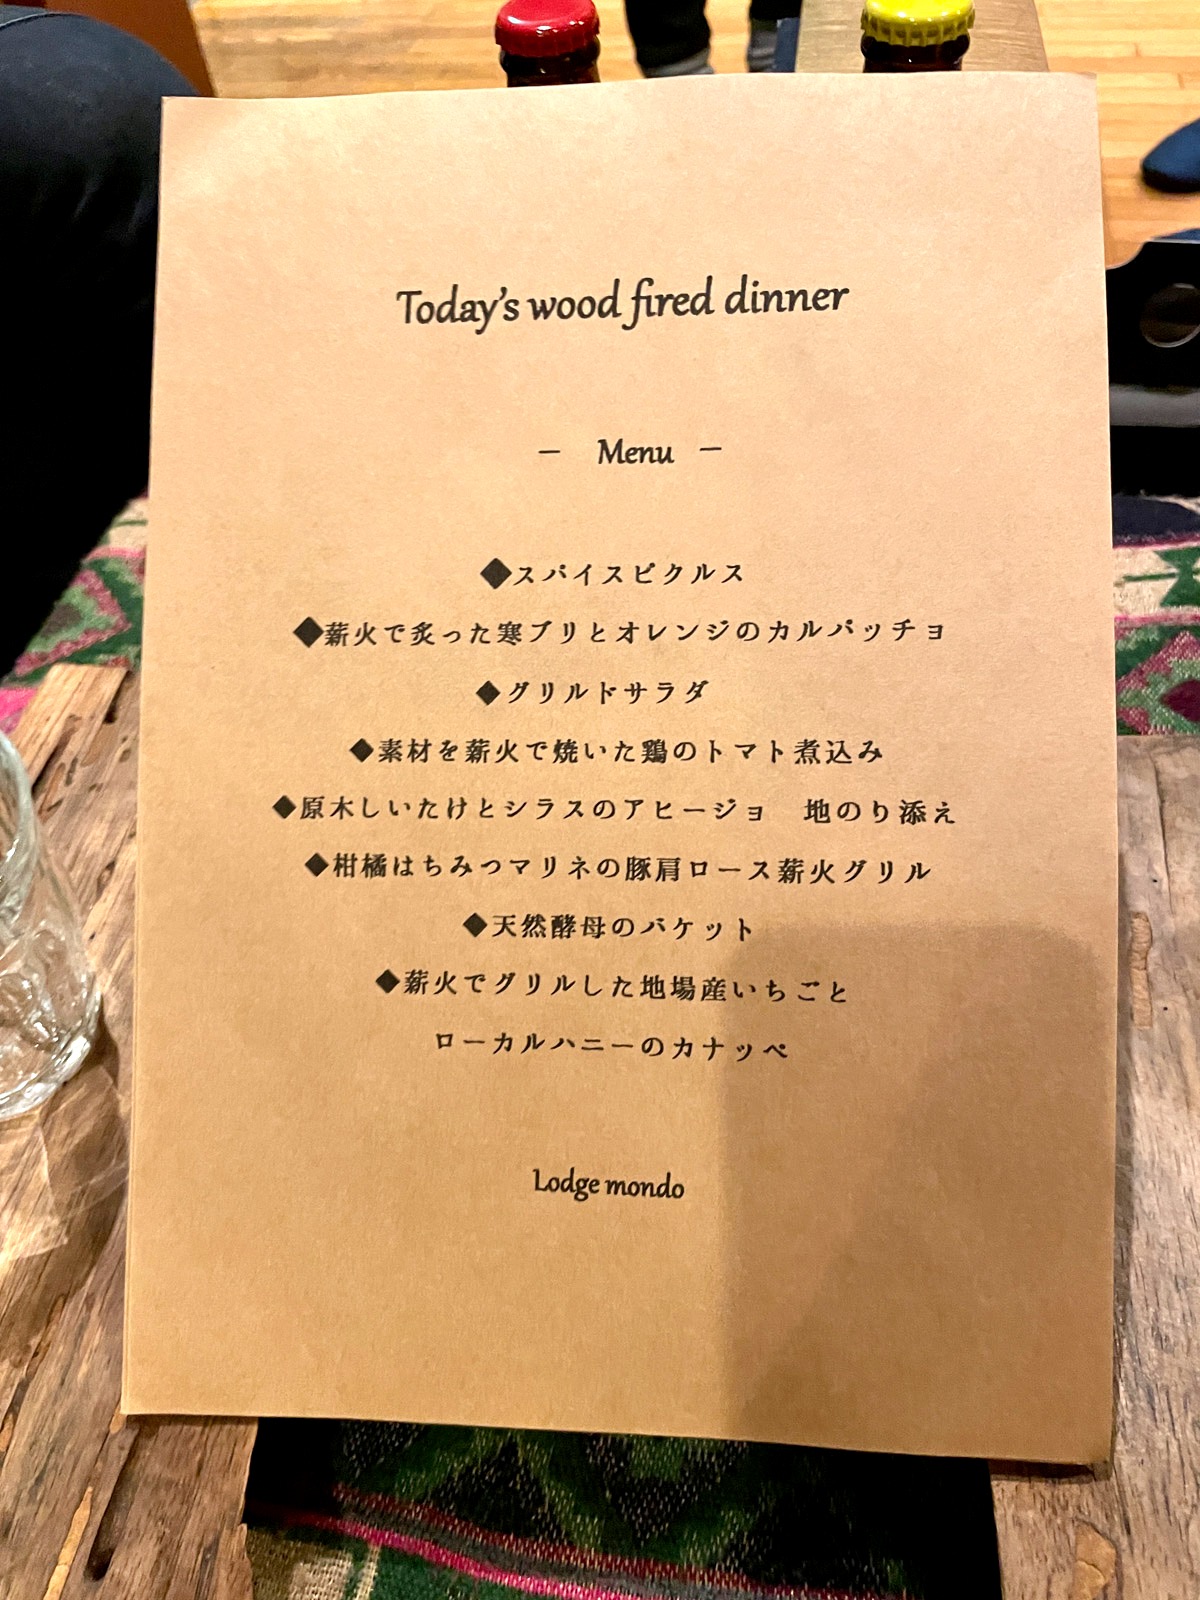 Today's wood fired dinner
— Menu —
◆スパイスピクルス
◆薪火で炙った寒ブリとオレンジのカルパッチョ
◆グリルドサラダ
◆素材を薪火で焼いた鶏のトマト煮込み
◆原木しいたけとシラスのアヒージョ　地のり添え
◆柑橘はちみつマリネの豚肩ロース薪火グリル
◆天然酵母のバケット
◆薪火でグリルした地場産いちごと
ローカルハニーのカナッペ
Lodge mondo